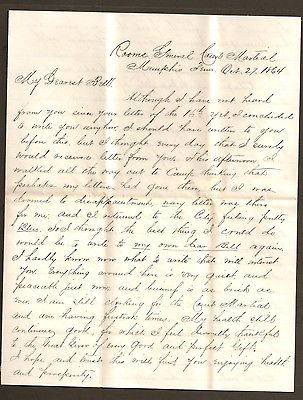 Rooms General Court Martial
Memphis Tenn. Oct. 27, 1864
My Dearest Bell
Although I have not heard
from you since your letter of the 16th yet I concluded
to write you anyhow I should have written to you
before this, but I thought every day that I surely
would receive letter from you. This afternoon I
walked all the way out to Camp thinking that
perhaps my letters had gone there, but I was
doomed to disappointment nary letter was there
for me. and I returned to the City feeling pretty
Blue. So I thought the best thing I could do
would be to write to my own dear Bell again.
I hardly know now what to write that will interest
you. Everything around here is very quiet and
peaceable just now and business is as brisk as
ever. I am still clerking for the Court Martial,
and am having times. My health still
continues good, for which I feel thankful
to the Great Giver of every good and perfect gift.
I hope and trust this will find you enjoying health
and prosperity.